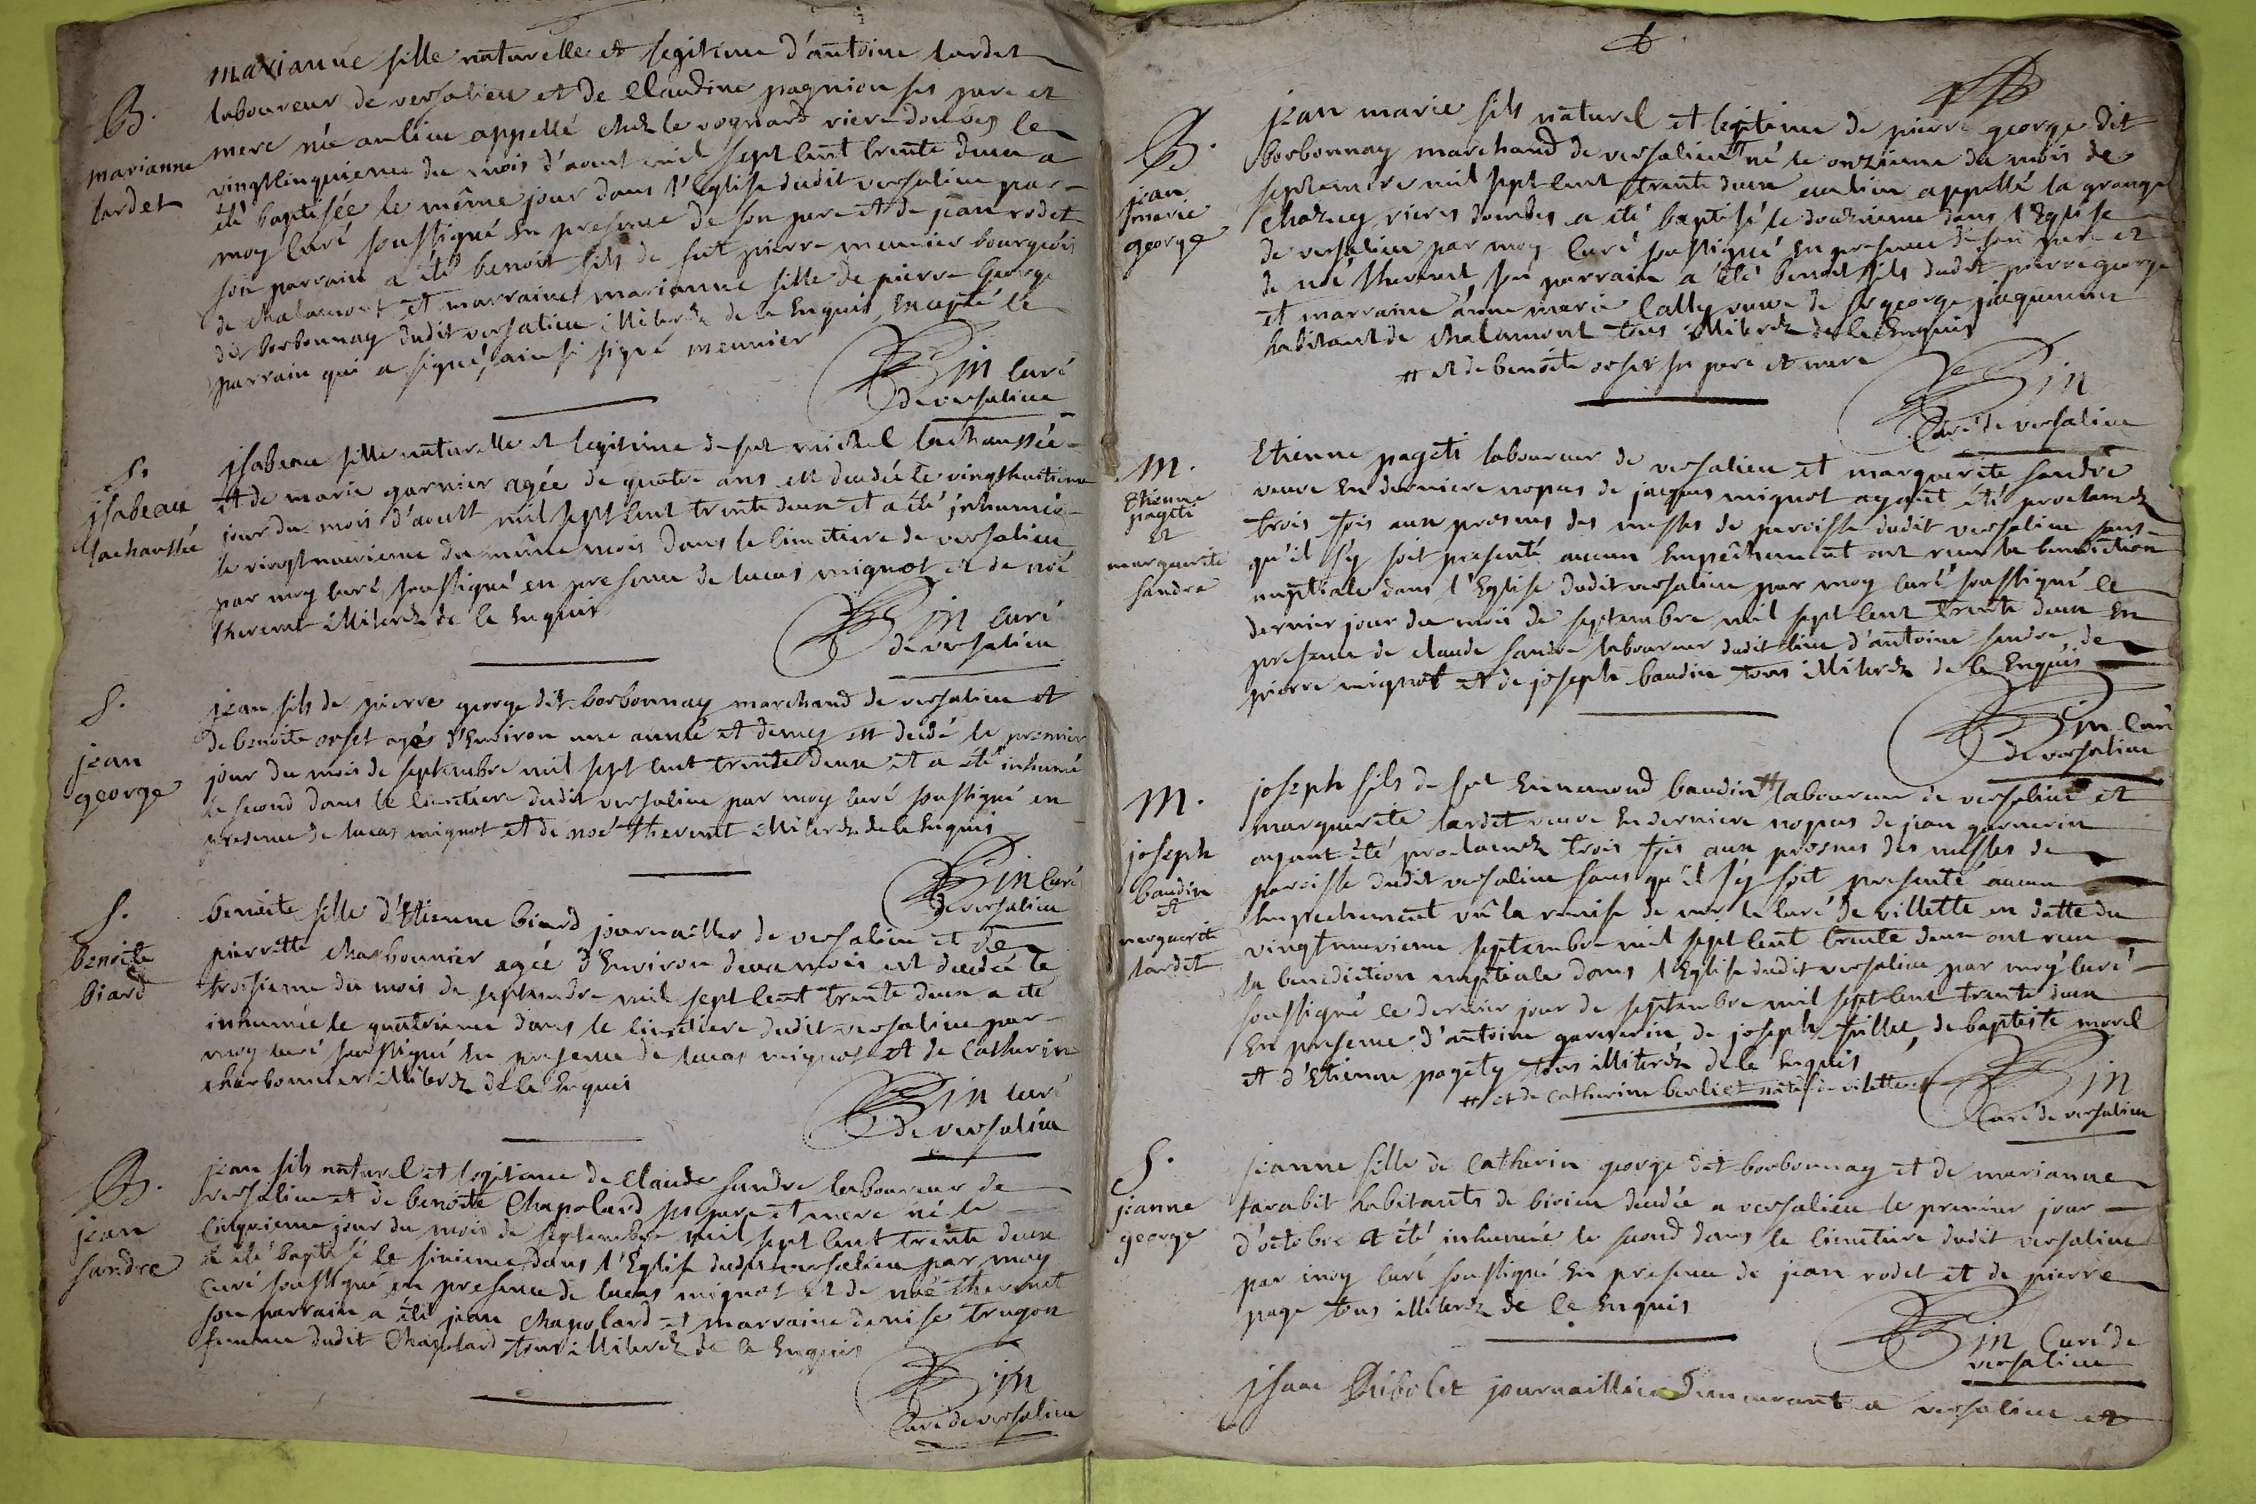 B.
marianne
lardet
marianne fille naturelle et legitime d'antoine lardet
laboureur de versalieu et de Claudine pagnion ses pere et
mere née au lieu appellé chez le rognard riere dombes le
vingtcinquieme du mois d'aoust mil sept cent trente deux a
été baptisée le même jour dans l'Eglise dudit versalieu par
moy curé soussigné En presence de son pere et de jean rodet
son parrain a été benoit fils de fut pierre meunier bourgeois
de chalamont et marraine marianne fille de pierre George
dit borbonnay dudit versalieu illiterez de ce Enquis Excepté le
parrain qui a signé, ainsi signé meunier
in curé
de versalieu
S.
jsabeau
lachaussée
jsabeau fille naturelle et legitime de fut michel lachaussée
et de marie garnier agée de quatre ans est decedée le vingthuitieme
jour du mois d'aoust mil sept cent trente deux et a été inhumée
le vingtneuvieme du même mois dans le cimetiere de versalieu
par moy curé soussigné en presence de lucas mignot et de noé
thevenet illiterez de ce Enquis
in curé
de versalieu
S.
jean
george
jean fils de pierre george dit borbonnay marchand de versalieu et
de benoite orset agés d'Environ une année et demy est decedé le premier
jour du mois de septembre mil sept cent trente deux et a été inhumé
le second dans le cimetiere dudit versalieu par moy curé soussigné en
presence de lucas mignot et de noé thevenet illiterez de ce Enquis
in curé
de versalieu
S.
benoite
biard
benoite fille d'Etienne biard journallier de versalieu et de
pierrette charbonnier agée d'Environ deux mois est decedée le
troisieme du mois de septembre mil sept cent trente deux a été
inhumée le quatrieme dans le cimetiere dudit versalieu par
moy curé soussigné En presence de lucas mignot et de Catherin
charbonnier illiterez de ce Enquis
in curé
de versalieu
B.
jean
sandre
jean fils naturel et legitime de Claude sandre laboureur de
versalieu et de benoite Chapolard ses pere et mere né le
cinquieme jour du mois de septembre mil sept cent trente deux
a été baptisé le sixieme dans l'Eglise dudit versalieu par moy
curé soussigné en presence de lucas mignot et de noé thevenet
son parrain a été jean chapolard et marraine denise trugon
femme dudit Chapolard tous illiterez de ce Enquis
in
Curé de versalieu
B.
jean
marie
george
jean marie fils naturel et legitime de pierre george dit
borbonnay marchand de versalieu # né le onzieme du mois de
septembre mil sept cent trente deux au lieu appellé la grange
chazey rieres dombes a été baptisé le douzieme dans l'Eglise
de versalieu par moy curé soussigné en presence de son pere et
de noé thevenet, son parrain a été benoit fils dudit pierre george
et marraine anne marie lally veuve de sr george jacquemin
habitant de chalamont tous illiterez de ce Enquis
# et de benoite orset ses pere et mere
in
Curé de versalieu
M.
Etienne
pageti
et
marguerite
sandre
Etienne pageti laboureur de versalieu et marguerite sandre
veuve En derniere nopces de jacques mignot ayant été proclamez
trois fois aux prosnes des messes de paroisse dudit versalieu sans
qu'il s'y soit presenté aucun Empêchement ont receu la benediction
nuptiale dans l'Eglise dudit versalieu par moy curé soussigné le
dernier jour du mois de septembre mil sept cent trente deux En
presence de claude sandre laboureur dudit lieu d'antoine sandre de
pierre mignot et de joseph baudin tous illiterez de ce Enquis
in Curé
de versalieu
M.
joseph
baudin
et
marguerite
lardet
joseph fils de fut Ennemond baudin # laboureur de versalieu et
marguerite lardet veuve En derniere nopces de jean garnerin
ayant été proclamez trois fois aux prosnes des messes de
paroisse dudit versalieu sans qu'il s'y soit presenté aucun
Empechement vû la remise de mr le curé de villette en datte du
vingtneuvieme septembre mil sept cent trente deux ont receu
la benediction nuptiale dans l'Eglise dudit versalieu par moy curé
soussigné le dernier jour de septembre mil sept cent trente deux
En presence d'antoine garnerin, de joseph fillet, de baptiste morel
et d'Etienne pagety tous illiterez de ce Enquis
# et de catherine berliet natif de vilette
in
Curé de versalieu
S.
jeanne
george
jeanne fille de Catherin george dit borbonnay et de marianne
farabit habitants de birieu decedée a versalieu le premier jour
d'octobre a été inhumée le second dans le cimetiere dudit versalieu
par moy curé soussigné En presence de jean rodet et de pierre
page tous illiterez de ce Enquis
in Curé de
versalieu
jsaac Ribolet journaillier demeurant a versalieu et